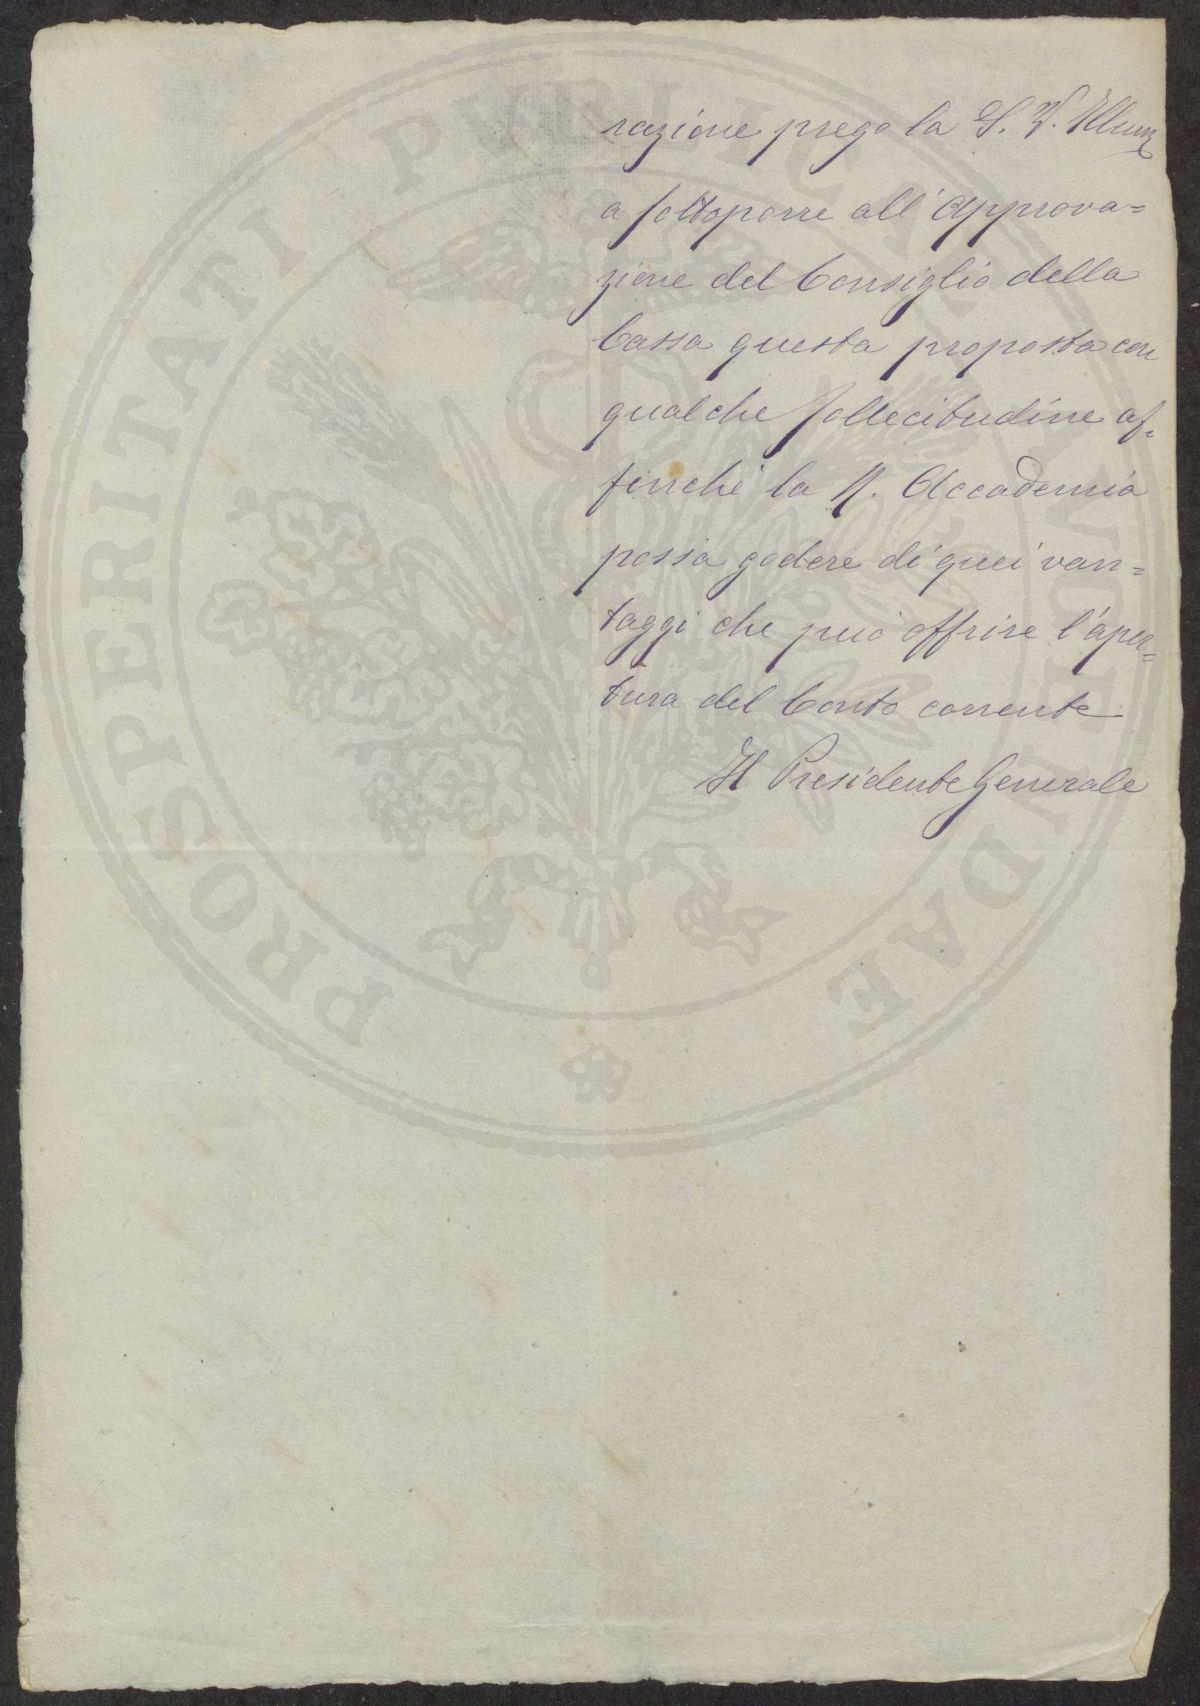 razione prego la S. V. Illma
a sottoporre all'approva=
zione del Consiglio della
Cassa questa proposta con
qualche sollecitudine af=
finché la R. Accademia
possa godere di quei van=
taggi che può offrire l'aper=
tura del Conto corrente
Il Presidente Generale
PROSPERITATI PUBLICAE AUGENDAE